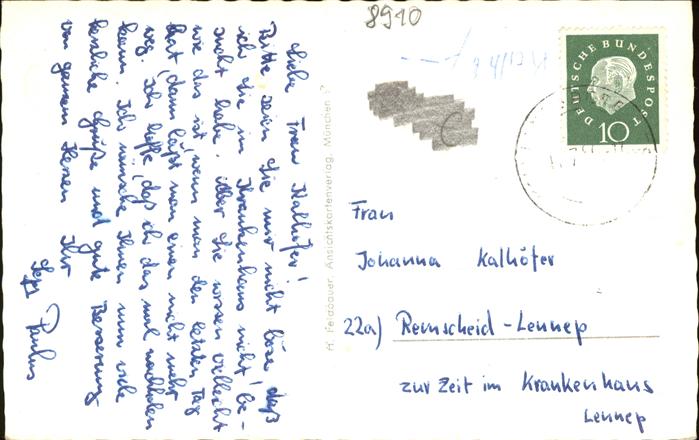 8910
Liebe Frau Kalhöfer!
Bitte seien Sie mir nicht böse, daß
ich Sie im Krankenhaus nicht be-
sucht habe. Aber Sie wissen vielleicht
wie das ist wenn man den letzten Tag
hat, dann läßt man einen nicht mehr
weg. Ich hoffe, daß ich das mal nachholen
kann. Ich wünsche Ihnen nun viele
herzliche Grüße und gute Besserung
von ganzem Herzen Ihr
Paulus
H. Feldbauer, Ansichtskartenverlag, München
DEUTSCHE BUNDESPOST
10
Frau
Johanna Kalhöfer
22a) Remscheid-Lennep
zur Zeit im Krankenhaus
Lennep